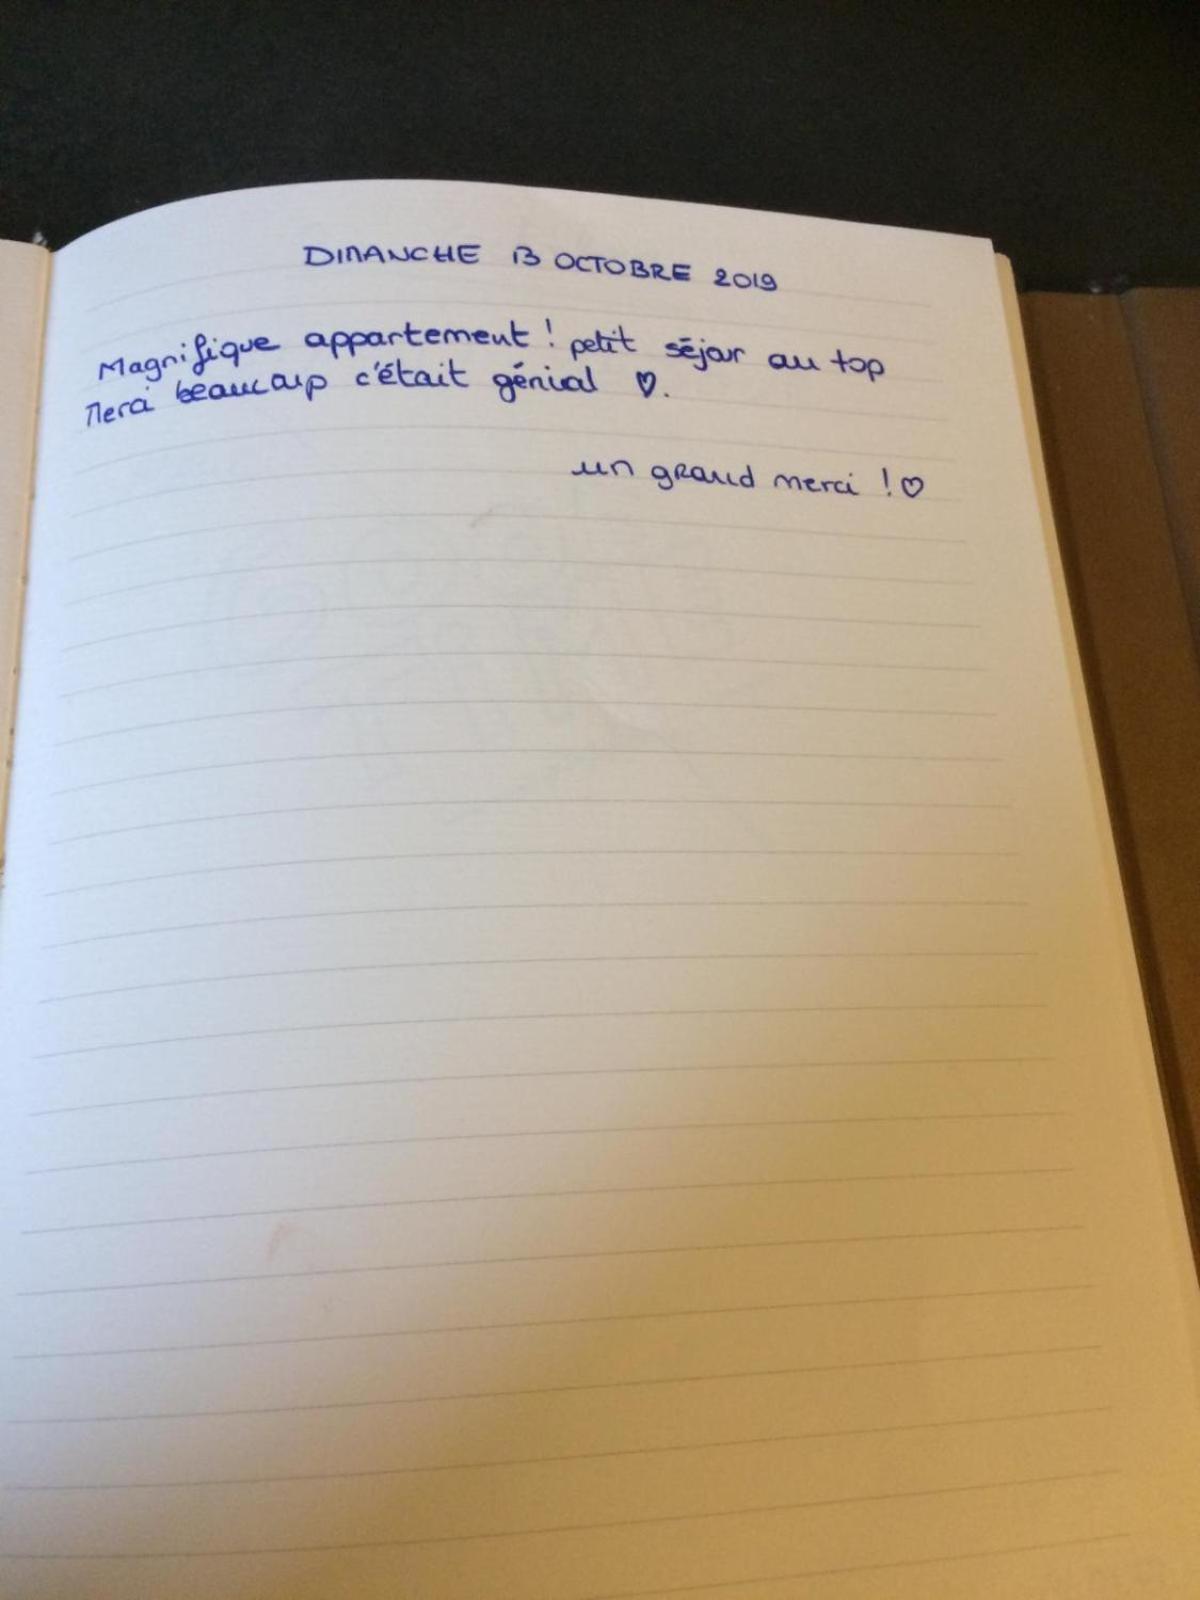 DIMANCHE 13 OCTOBRE 2019
Magnifique appartement ! petit séjour au top
Merci beaucoup c'était génial ♡.
un grand merci ! ♡